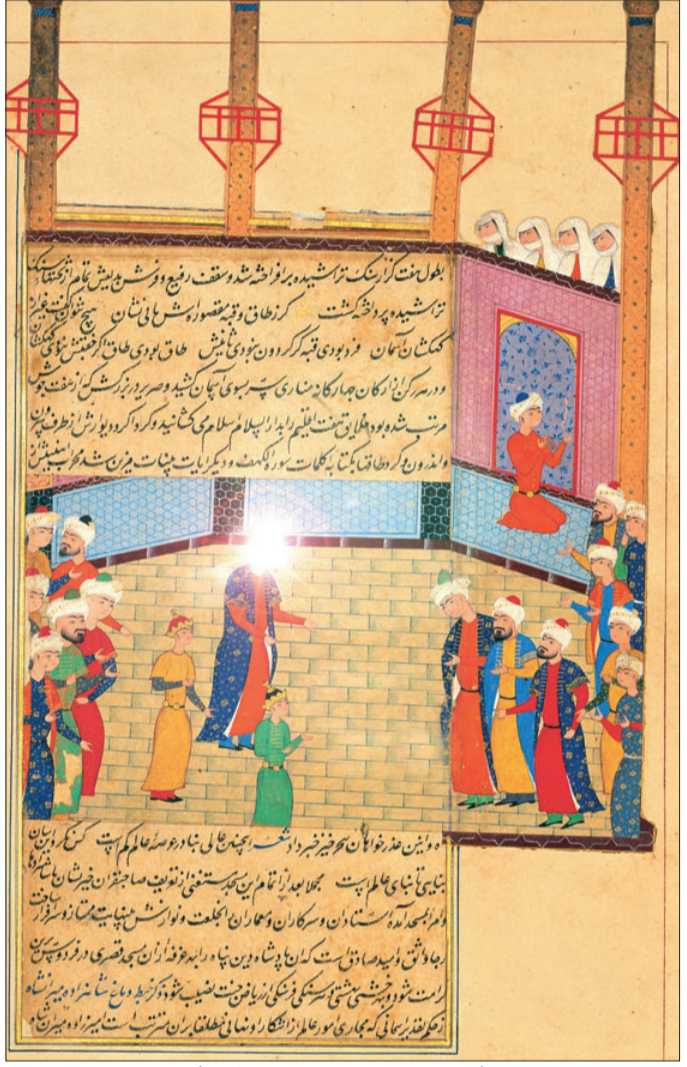 بطول هفت گز از سنک تراشیده برافراخته شد و سقف رفیع و فرش بدیعش تمام از تختهٔ سنک
تراشیده پرداخته گشت کز طاق و قبه مقصوره اش هیچ
کهکشان آسمان فرد بودی قبه گر گردون نبودی ثانیش طاق بودی طاق اگر جفتش نبودی کهکشان
و در هر رکن از ارکان چهارگانه مناری سر بسوی آسمان کشید و صریر در بزرگش که از هفت جوش
مرتب شده بود خلایق هفت اقلیم را بدار السلام اسلام می کشانید و گرداگرد دیوارش از طرف بیرون
و اندرون و گرد طاقها بکتابه کلمات سوره الکهف و دیگر آیات بینات مزین شد
و این عذرخواهان سحرخیز خبر داد شعر اینچنین عالی بنا در عرصهٔ عالم کم است
بنای عالم است مجملا بعد از اتمام این مسجد مستغنی از تعریف صاحبقران
و امرا بمسجد آمده استادان و سرکاران و معماران بخلعت و نوازش بینهایت ممتاز و سرافراز ساخت
رجا واثق و امید صادق است که آن پادشاه دین پناه را بهر غرفه از آن مسجد قصری در فردوس برین
کرامت شود و بهر بهشتی از ریاض جنت نصیب شود ذکر خبط دماغ شاهزاده میرانشاه
از حکم تقدیر آسمانی که مجاری امور عالم از آشکار او نهانی مطلقا بر آن مترتب است امیرزاده میرانشاه